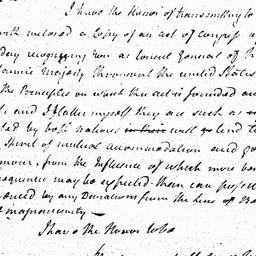 I have the Honor of transmitting to
with enclosed a Copy of an act of Congress of
day recognizing you as Consul General of H
tannic Majesty throughout the united States
the Principles on which the act is founded are
and I flatter myself they are such as
ted by both nations in their will to tend to
Spirit of mutual accommodation and good
humour, from the Influence of which more
sequences may be expected than can possi
duced by any Deviations from the Line of
magnanimity —
I have the Honor to be